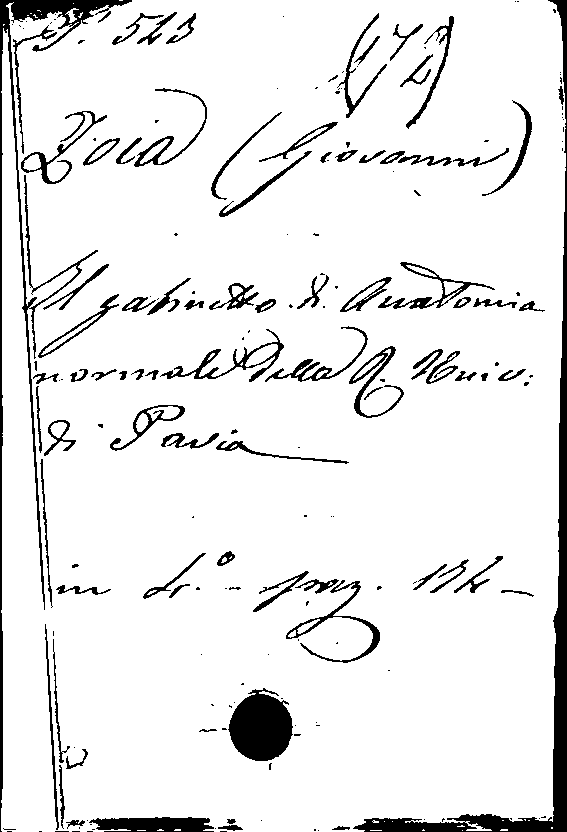 P. 543
(172)
Zoia (Giovanni)
Il gabinetto di Anatomia
normale della R. Univ:
di Pavia
in 4.° - pag. 174 -